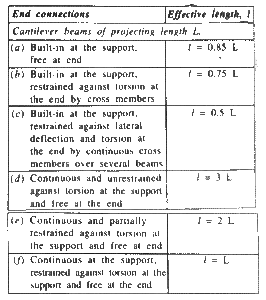 End connections Effective length, l
Cantilever beams of projecting length L.
(a) Built-in at the support, l = 0.85 L
free at end
(b) Built-in at the support, l = 0.75 L
restrained against torsion at
the end by cross members
(c) Built-in at the support, l = 0.5 L
restrained against lateral
deflection and torsion at
the end by continuous cross
members over several beams
(d) Continuous and unrestrained l = 3 L
against torsion at the support
and free at the end
(e) Continuous and partially l = 2 L
restrained against torsion at
the support and free at end
(f) Continuous at the support, l = L
restrained against torsion at the
support and free at the end